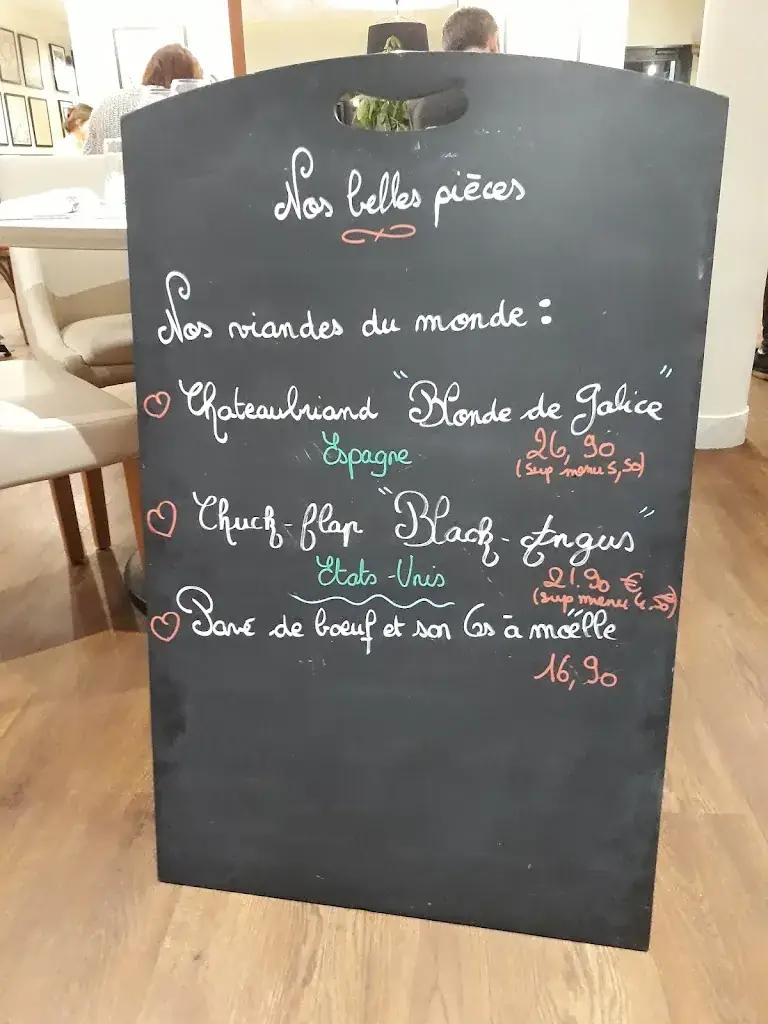 Nos belles pièces
Nos viandes du monde :
Chateaubriand "Blonde de Galice"
Espagne 26,90
(sup menu 5,50)
Chuck-flap "Black-Angus"
Etats-Unis 21.90 €
(sup menu 4.50)
Pavé de boeuf et son Os à moëlle
16,90